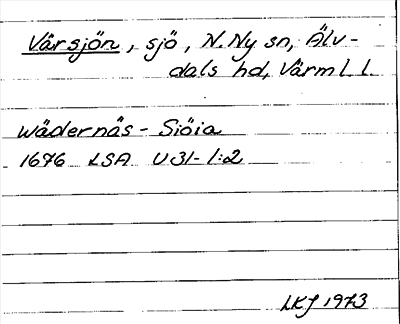 Värsjön, sjö, N. Ny sn, Älv-
dals hd, Värml. l.
Wädernäs - Siöia
1676 LSA U31-1:2
LKJ 1973